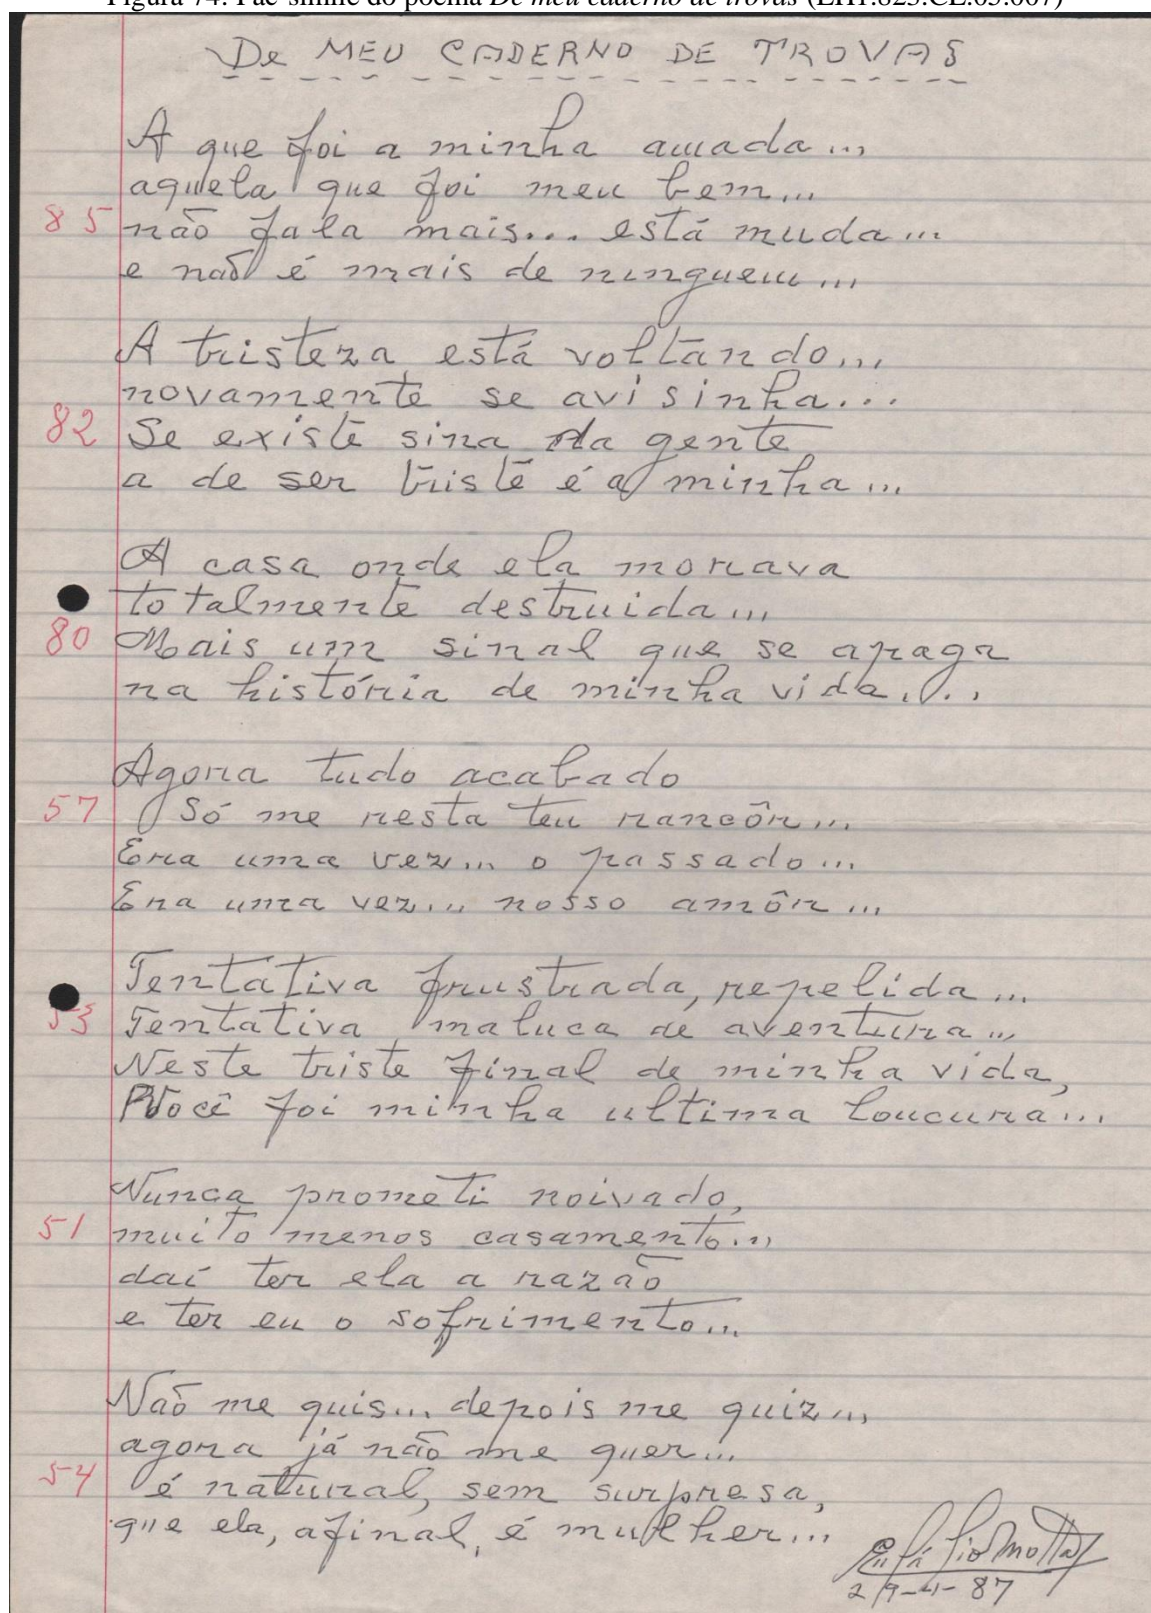 Figura 74: Fac-símile do poema De meu caderno de trovas (EH1.823.CL.05.007)
De MEU CADERNO DE TROVAS
A que foi a minha amada...
aquela que foi meu bem...
85 não fala mais... está muda...
e não é mais de ninguem...
A tristeza está voltando...
novamente se avisinha...
82 Se existe sina da gente
a de ser triste é a minha...
A casa onde ela morava
totalmente destruida...
80 Mais um sinal que se apaga
na história de minha vida...
Agora tudo acabado
57 Só me resta teu rancôr...
Era uma vez... o passado...
Era uma vez... nosso amôr...
Tentativa frustrada, repelida...
53 Tentativa maluca de aventura...
Neste triste final de minha vida,
Você foi minha ultima loucura...
Nunca prometi noivado,
51 muito menos casamento...
daí ter ela a razão
e ter eu o sofrimento...
Não me quis... depois me quiz...
agora já não me quer...
54 é natural, sem surpresa,
que ela, afinal, é mulher...
Eulálio Motta
29-4-87